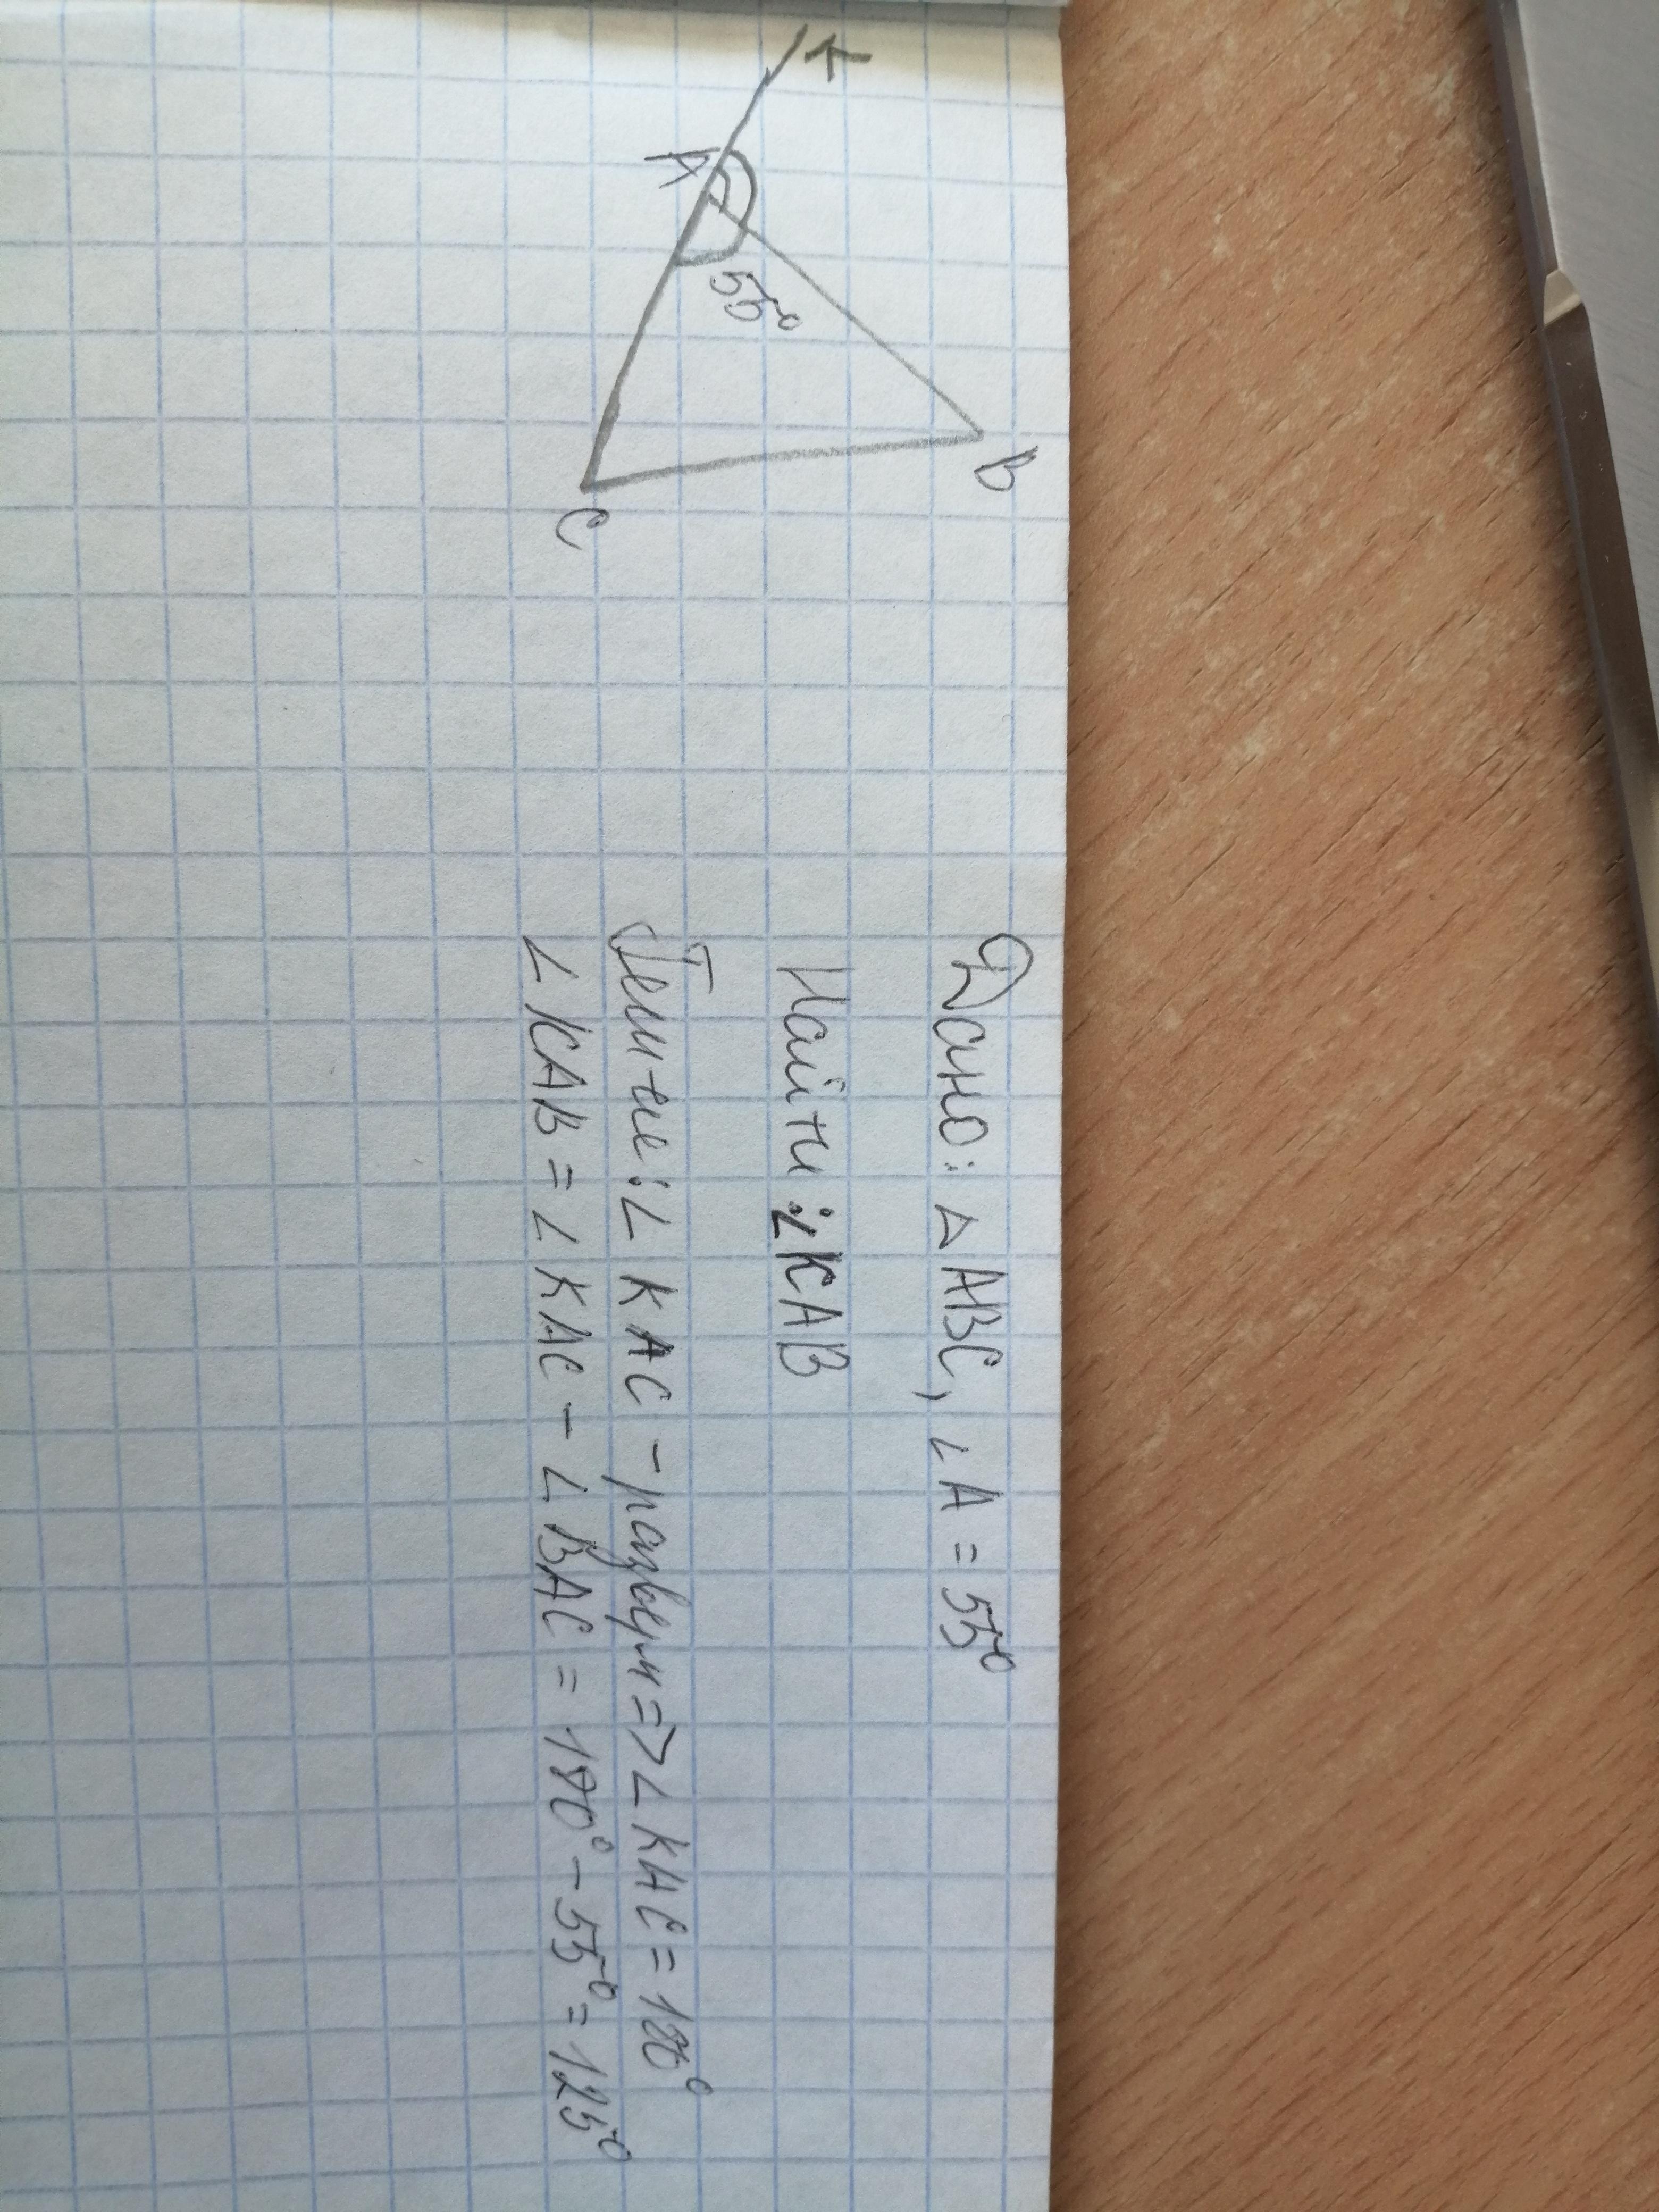 K
A
55°
B
C
Дано: △ABC, ∠A = 55°
Найти: ∠KAB
Реш-ие: ∠KAC - разверн => ∠KAC = 180°
∠KAB = ∠KAC - ∠BAC = 180° - 55° = 125°